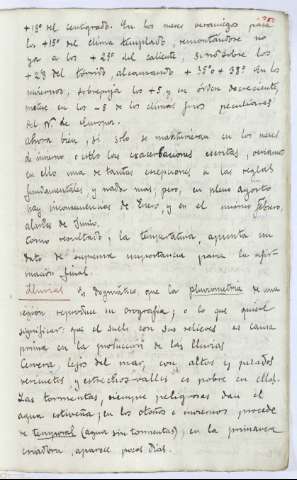 +18º del centígrado. En los meses veraniegos pasa
los +18º del clima templado, remontándose no
ya a los +23º del caliente, sino sobre los
+29 del tórrido, alcanzando + 35º o + 38º. En los
inviernos, sobrepuja los +5 y en orden decreciente,
métese en los -8 de los climas fríos peculiares
del Nº de Europa.
Ahora bien, si solo se mantuvieran en los meses
de invierno o estío las exacerbaciones escritas, veríamos
en ello una de tantas excepciones a las reglas
fundamentales, y nada más; pero, en pleno Agosto
hay inconveniencias de Enero, y en el mismo Febrero,
alardes de Junio.
Como resultado, la temperatura, apunta un
dato de suprema importancia para la afir-
mación final.
Lluvias Es dogmático, que la pluviometría de una
región reproduce su orografía; o lo que quiere
significar: que el suelo con sus relieves es causa
prima en la producción de las lluvias.
Cervera lejos del mar, con altos y pelados
vericuetos, y estrechos valles es pobre en ellas.
Las tormentas, siempre peligrosas dan el
agua estiveña; en los otoños e inviernos procede
de temporal (agua sin tormentas); en la primavera
criadora, aparece pocos días.